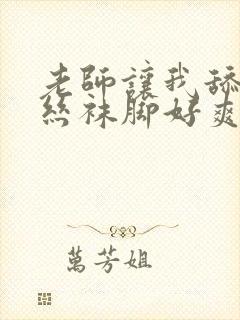 老師讓我舔
絲袜脚好爽
萬芳姐